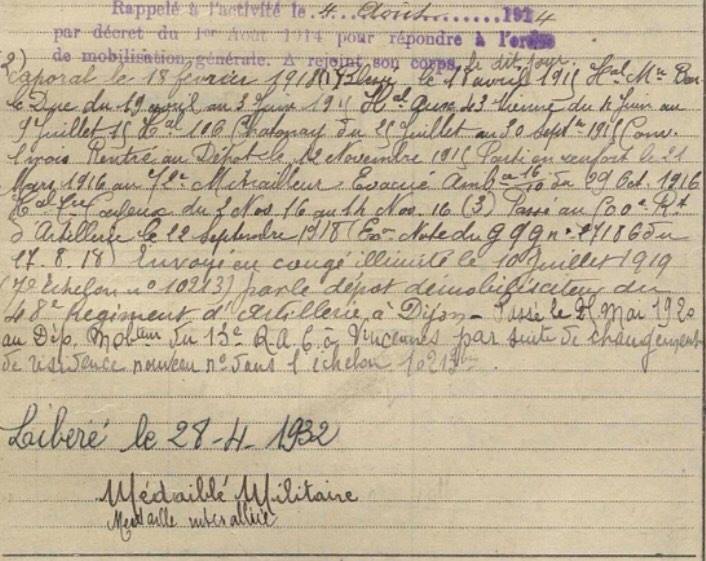 Rappelé à l'activité le 4 Août 1914
par décret du 1er Août 1914 pour répondre à l'ordre
de mobilisation générale. A rejoint son corps, le dit jour.
2) Caporal le 18 février 1918 (1) le 11 avril 1915 Hal Mre Bar
le Duc du 19 avril au 3 Juin 1915 Hal Aux 43 Vienne du 4 Juin au
9 Juillet 15 Hal 106 Chatonay du 25 Juillet au 30 Septre 1915 Conv.
1 mois Rentré au Dépôt le 12 Novembre 1915 Parti en renfort le 21
Mars 1916 au Mitrailleur. Evacué Ambce 16/10 du 29 Oct. 1916
Hal du 2 Nov. 16 au 14 Nov. 16 (3) Passé au Rt
d'Artillerie le 22 septembre 1918 (Exon Note du G Q G n° 27186 du
27.8.18) Envoyé en congé illimité le 10 Juillet 1919
(7e Echelon n° 10213) par le dépôt démobilisateur du
48e Régiment d'Artillerie, à Dijon - Passé le 21 Mai 1920
au Dép. Mobteur du 13e R.A.C. à Vincennes par suite de changement
de résidence nouveau n° dans l'échelon 10213bis
Libéré le 28-4-1932
Médaillé Militaire
Medaille interalliée